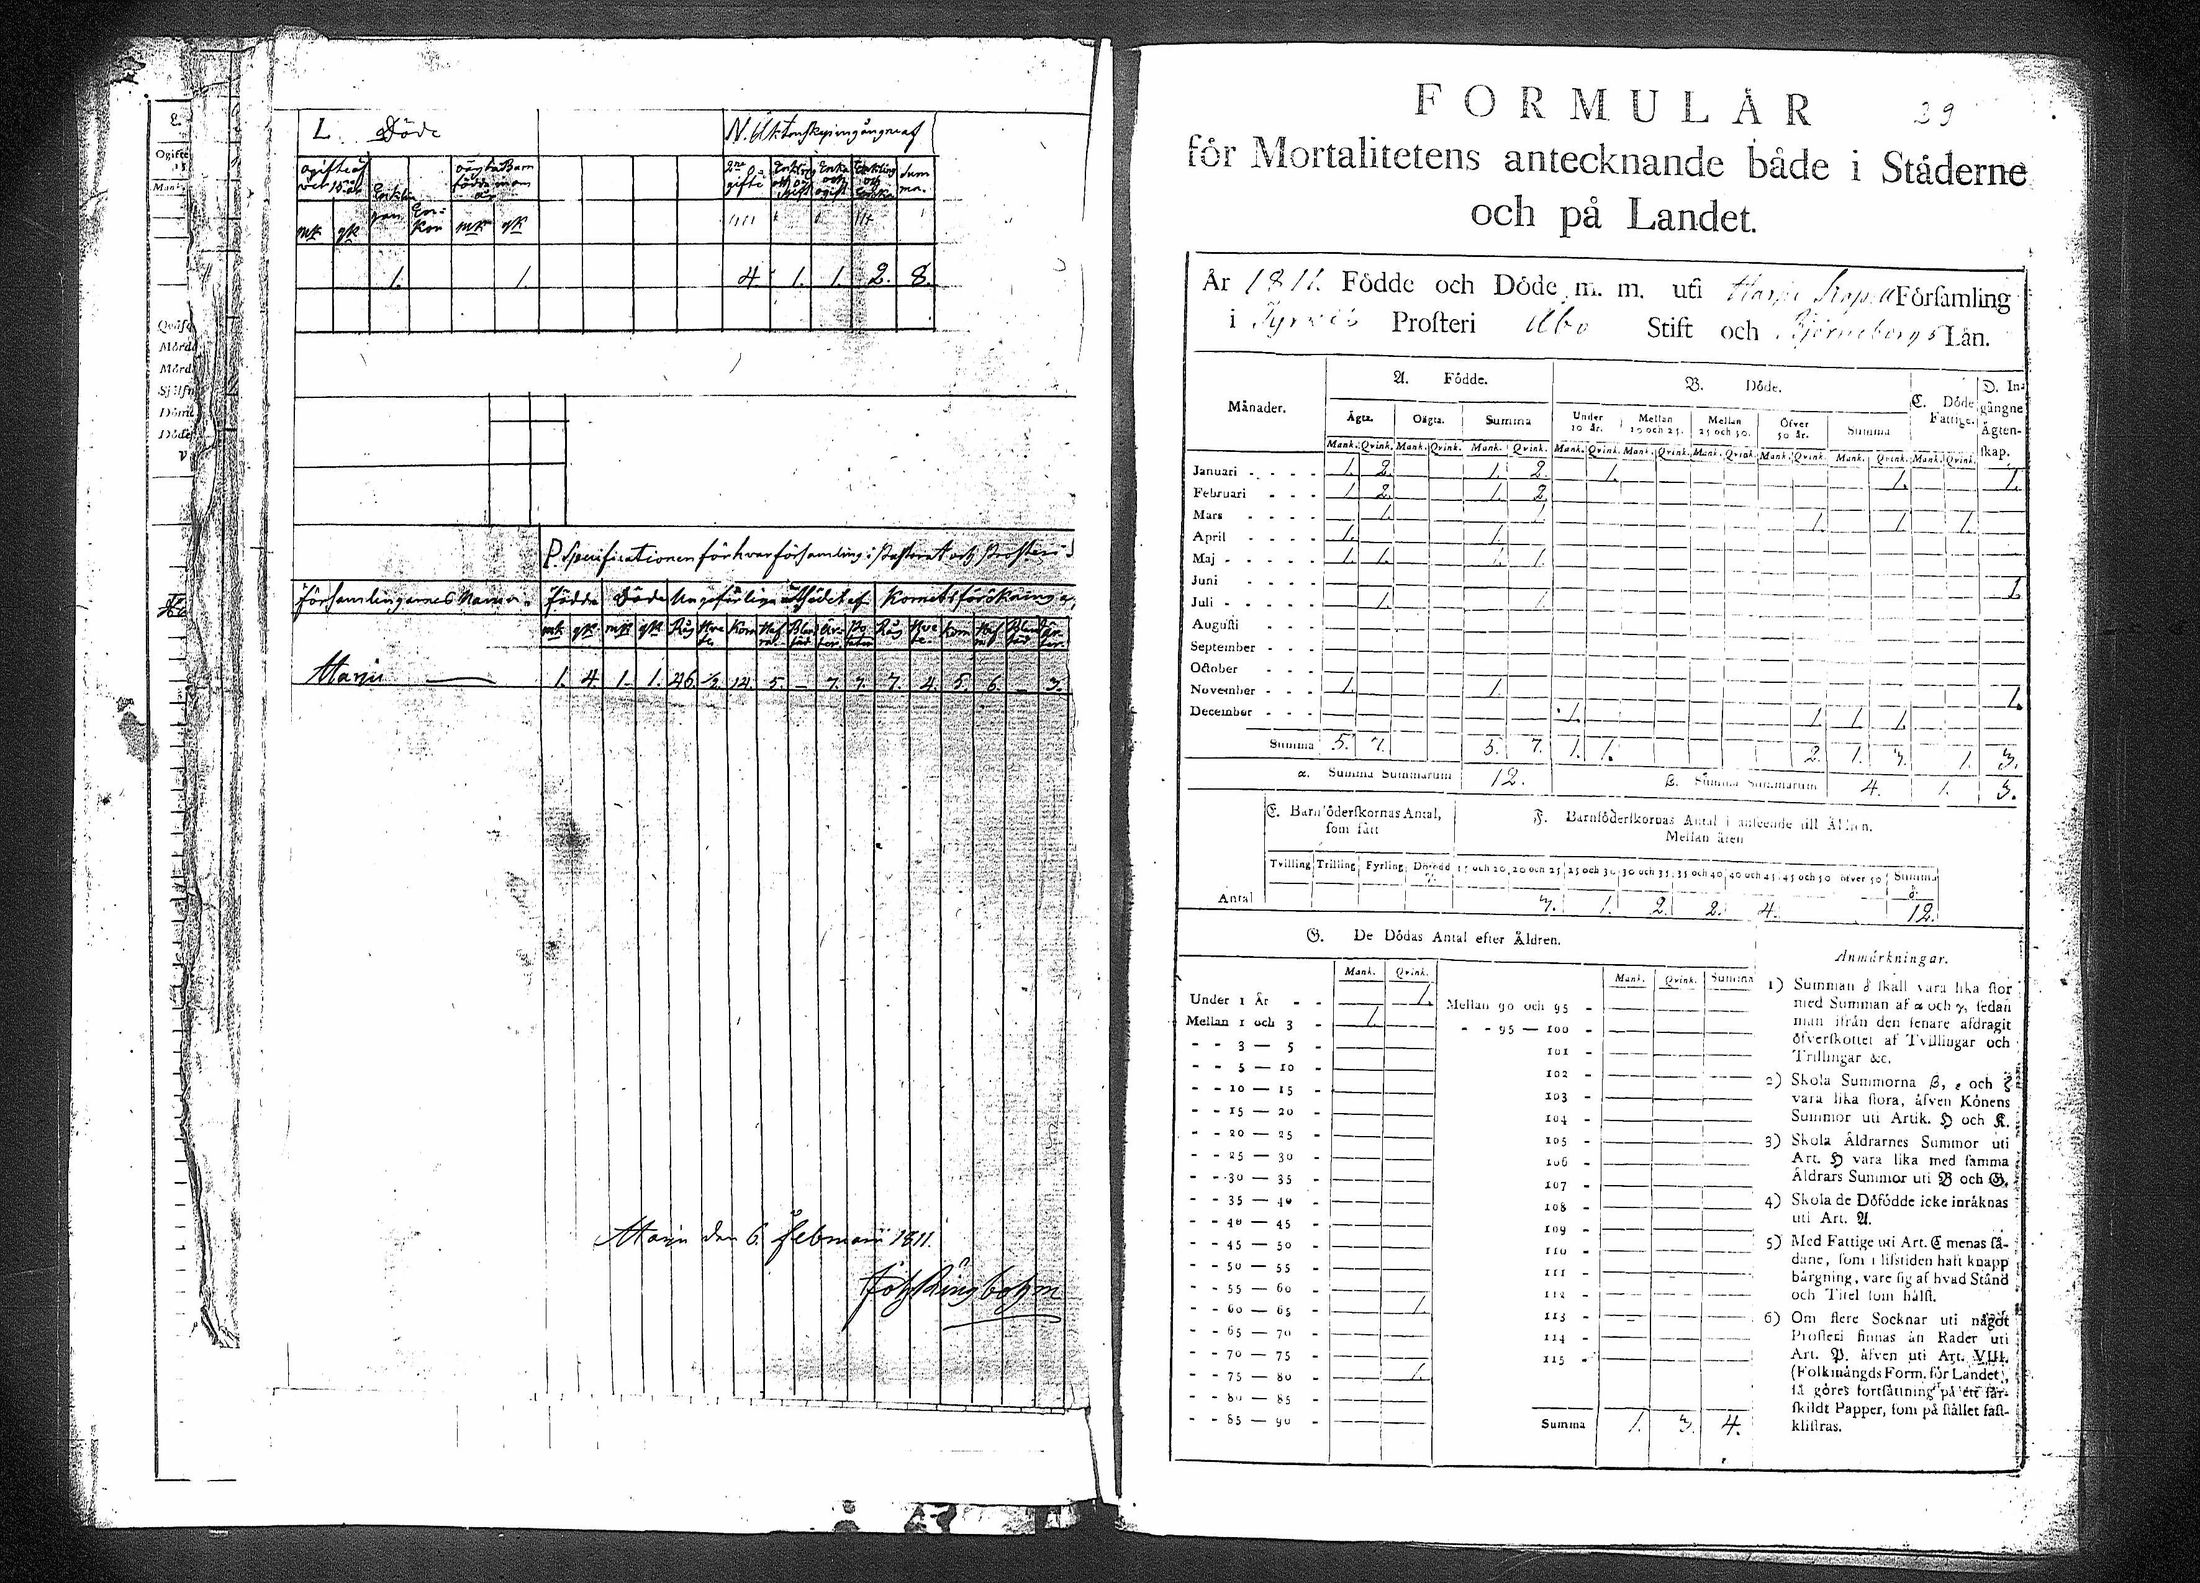 L. Döde
N. Äktenskap ingångne af
ogifte öfver 15 år
Enklingar
Enkor
oägta Barn födde inom år
2ne ogifte
Enkling och ogift
Enka och ogift
Enkling och Enka
Summa.
mk qk mk qk
1. 1. 4. 1. 1. 2. 8.
P. Specificationen för hvar församling i Pastorat och Prosteri
Församlingarnes Namn. Födde Döde Ungefärliga Utsädet af Kornets förökning
mk qk mk qk Råg Hvete Korn Hafra Blandsäd Ärter Potates Råg Hvete Korn Hafra Blandsäd Ärter
Harju 1. 4. 1. 1. 46. ½. 14. 5. — 7. 7. 7. 4. 5. 6. — 3.
Harju den 6 Februarii 1811.
Ogifte
Mank.
Döde
FORMULÄR
29
för Mortalitetens antecknande både i Städerne
och på Landet.
År 1811. Födde och Döde m. m. uti Harju Kapell Församling
i Tyrvis Prosteri Åbo Stift och Björneborgs Län.
Månader.
A. Födde.
B. Döde.
C. Döde Fattige.
D. Ingångne Ägtenskap.
Ägta. Oägta. Summa Under 10 år. Mellan 10 och 25. Mellan 25 och 50. Öfver 50 år. Summa
Mank. Qvink. Mank. Qvink. Mank. Qvink. Mank. Qvink. Mank. Qvink. Mank. Qvink. Mank. Qvink. Mank. Qvink. Mank. Qvink.
Januari 1. 2. 1. 2. 1. 1. 1.
Februari 1. 2. 1. 2.
Mars 1. 1. 1. 1. 1.
April 1. 1.
Maj 1. 1. 1. 1.
Juni 1.
Juli 1. 1.
Augusti
September
October
November 1. 1. 1.
December 1. 1. 1. 1.
Summa 5. 7. 5. 7. 1. 1. 2. 1. 3. 1. 3.
α. Summa Summarum 12. β. Summa Summarum 4. 1. 3.
E. Barnföderskornas Antal, som fått
F. Barnföderskornas Antal i anseende till Åldren.
Mellan åren
Tvilling Trilling Fyrling Dödfödd 15 och 20 20 och 25 25 och 30 30 och 35 35 och 40 40 och 45 45 och 50 öfver 50 Summa
γ. δ.
Antal 3. 1. 2. 2. 4. 12.
G. De Dödas Antal efter Åldren.
Mank. Qvink. Mank. Qvink. Summa
Under 1 År - - 1.
Mellan 1 och 3 - 1.
- - 3 — 5 -
- - 5 — 10 -
- - 10 — 15 -
- - 15 — 20 -
- - 20 — 25 -
- - 25 — 30 -
- - 30 — 35 -
- - 35 — 40 -
- - 40 — 45 -
- - 45 — 50 -
- - 50 — 55 -
- - 55 — 60 -
- - 60 — 65 - 1.
- - 65 — 70 -
- - 70 — 75 -
- - 75 — 80 - 1.
- - 80 — 85 -
- - 85 — 90 -
Mellan 90 och 95 -
- - 95 — 100 -
101
102
103
104
105
106
107
108
109
110
111
112
113
114
115
Summa 1. 3. 4.
Anmärkningar.
1) Summan δ skall vara lika stor
med Summan af α och γ, sedan
man ifrån den senare afdragit
öfverskottet af Tvillingar och
Trillingar &c.
2) Skola Summorna β, ε och ζ
vara lika stora, äfven Könens
Summor uti Artik. H och K.
3) Skola Åldrarnes Summor uti
Art. H vara lika med samma
Åldrars Summor uti B och G.
4) Skola de Döfödde icke inräknas
uti Art. A.
5) Med Fattige uti Art. C menas så-
dane, som i lifstiden haft knapp
bärgning, vare sig af hvad Stånd
och Titel som hälst.
6) Om flere Socknar uti något
Prosteri finnas än Rader uti
Art. P. äfven uti Art. VIII.
(Folkmängds Form. för Landet),
så göres fortsättning på ett sär-
skildt Papper, som på stället fast-
klistras.